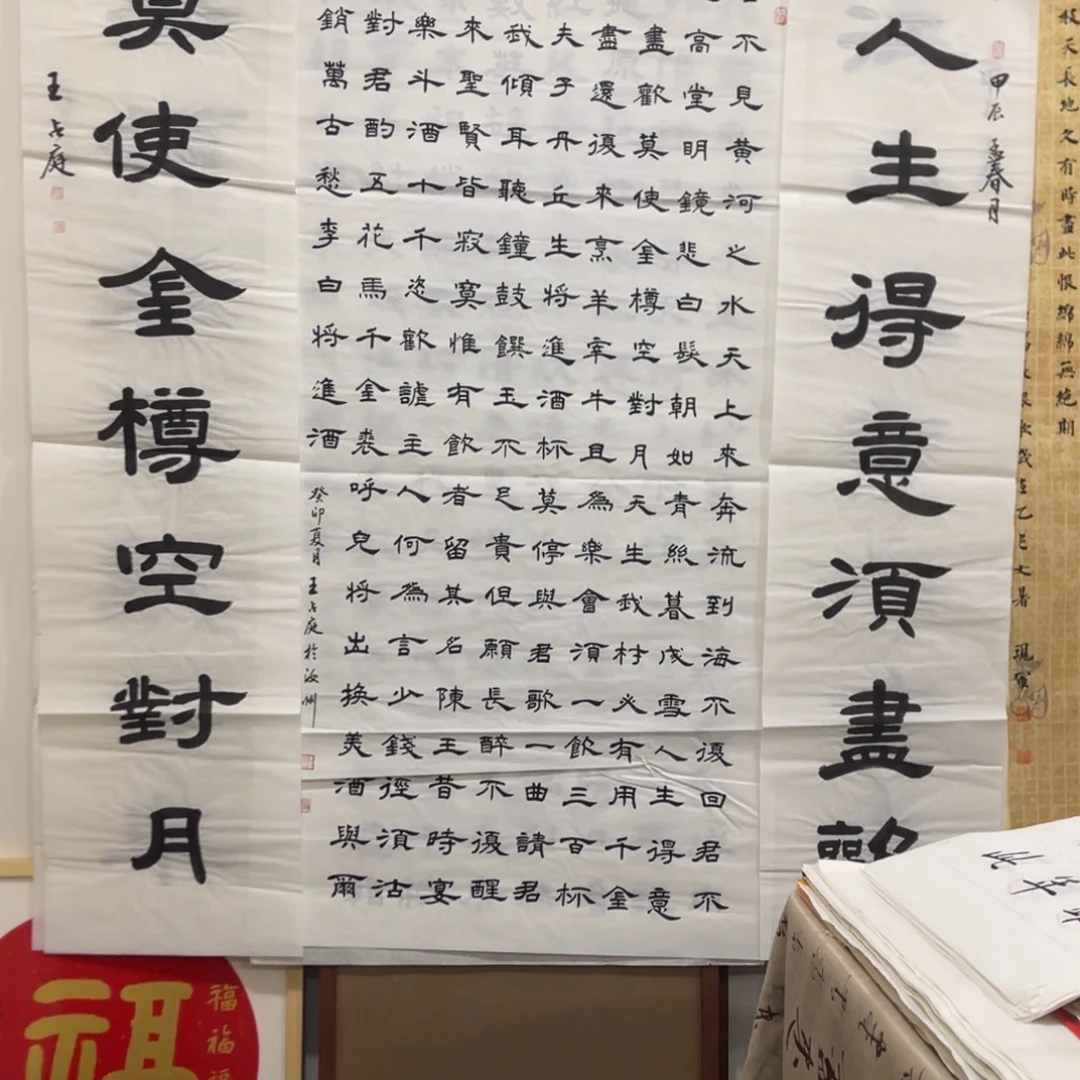 枝天長地久有時盡此恨綿綿無絕期
歲在乙巳大暑
甲辰孟春月
人生得意須盡歡
不見黄河之水天上來奔流到海不復回君不
高堂明鏡悲白髮朝如青絲暮成雪人生得意
盡歡莫使金樽空對月天生我材必有用千金
盡還復來烹羊宰牛且為樂會須一飲三百杯
夫子丹丘生將進酒杯莫停與君歌一曲請君
我傾耳聽鐘鼓饌玉不足貴但願長醉不復醒
來聖賢皆寂寞惟有飲者留其名陳王昔時宴
樂斗酒十千恣歡謔主人何為言少錢徑須沽
對君酌五花馬千金裘呼兒將出換美酒與爾
銷萬古愁李白將進酒
癸卯夏月王占庭於汝州
莫使金樽空對月
王占庭
福福福